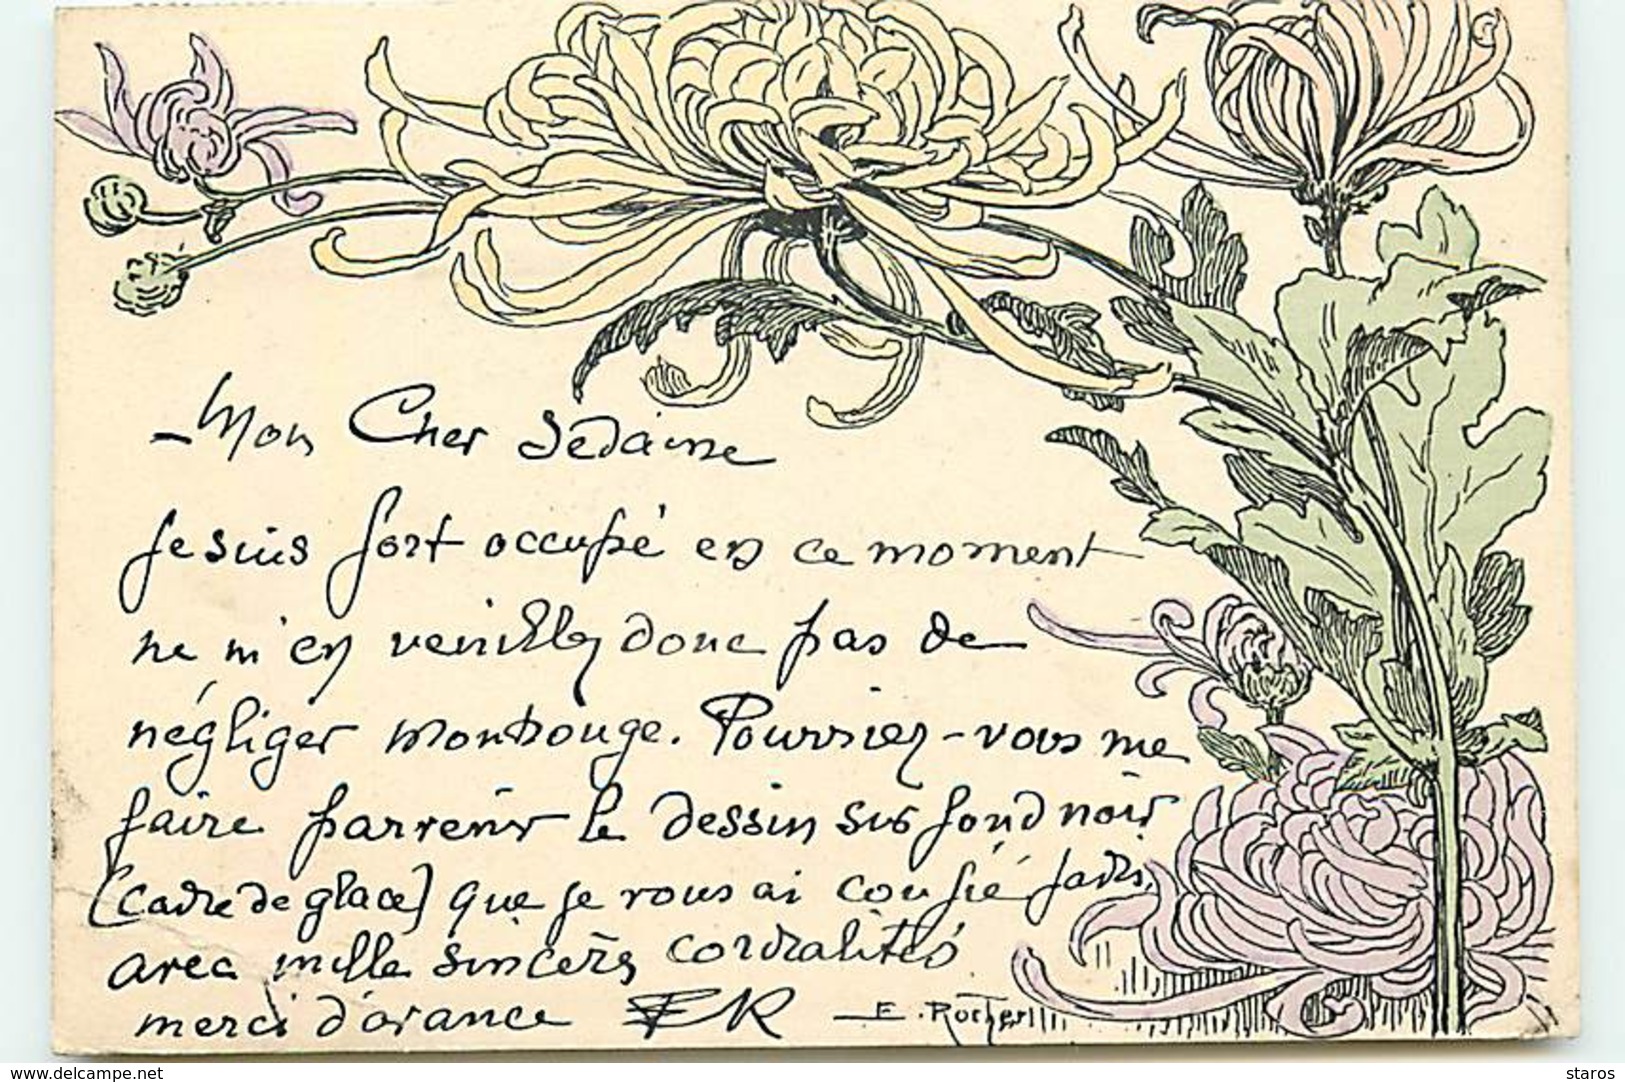 Mon Cher Sedaine
Je suis fort occupé en ce moment
ne m'en veuillez donc pas de
négliger Montrouge. Pourriez-vous me
faire parvenir le dessin sur fond noir
(cadre de glace) que je vous ai confié jadis.
avec mille sincères cordialités
merci d'avance ER E. Rocher
www.delcampe.net
staros